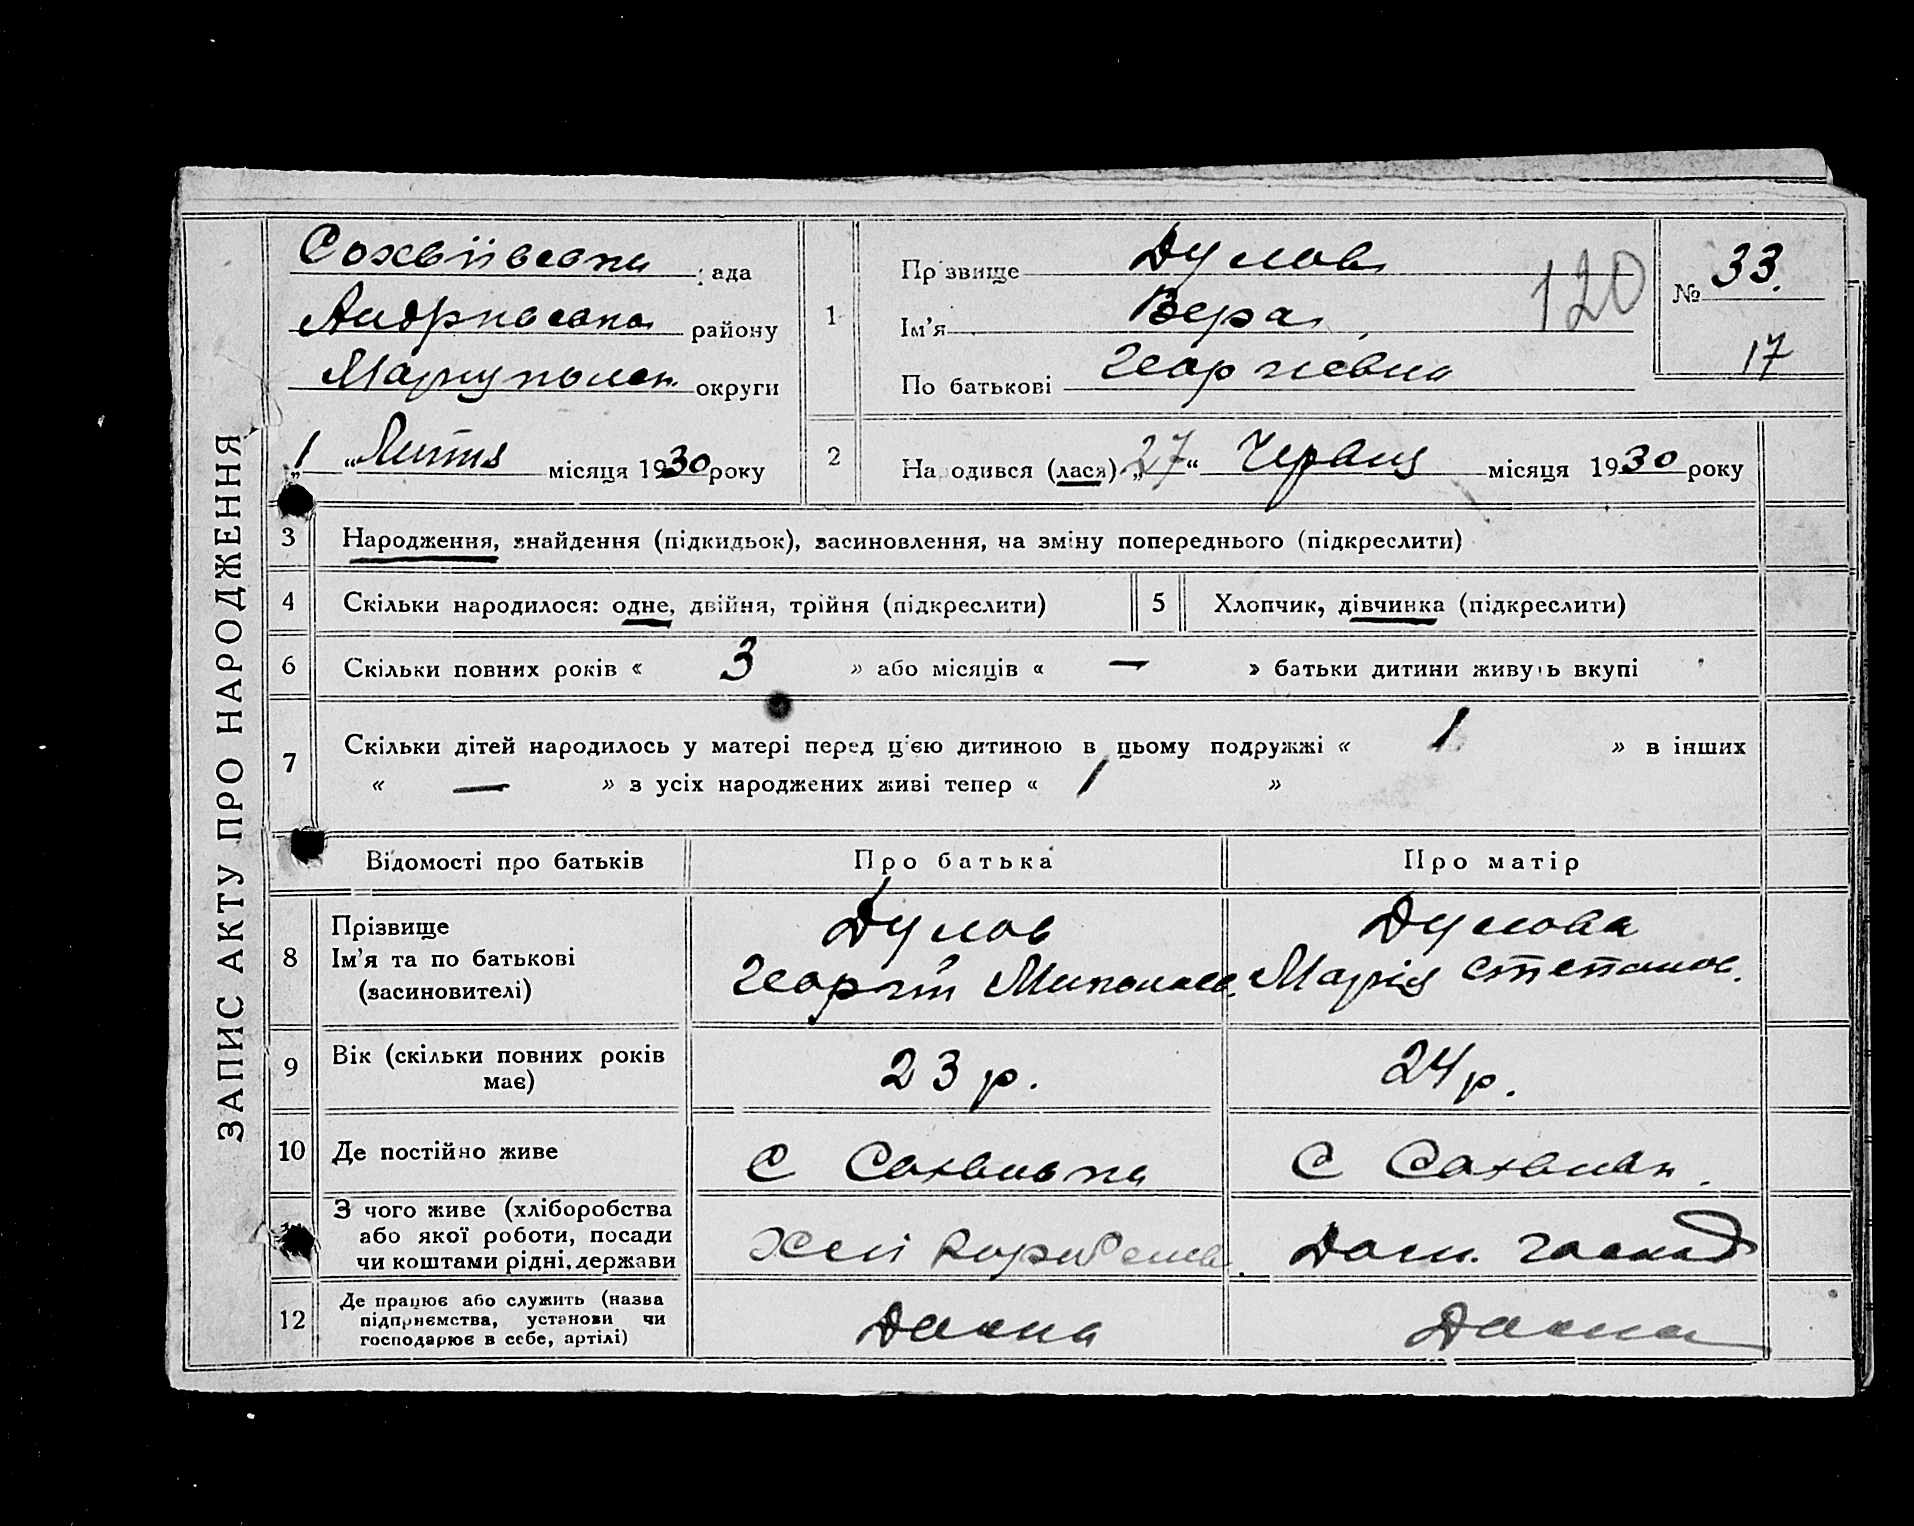 ЗАПИС АКТУ ПРО НАРОДЖЕННЯ
Софіївська рада
району
Маріупольськ округи
„1“ Липня місяця 1930 року
1
Прізвище Дулова
Ім’я Вера
По батькові Георгіевна
120
№ 33.
17
2
Народився (лася) „27“ Червня місяця 1930 року
3 Народження, знайдення (підкидьок), засиновлення, на зміну попереднього (підкреслити)
4 Скільки народилося: одне, двійня, трійня (підкреслити)
5 Хлопчик, дівчинка (підкреслити)
6 Скільки повних років « 3 » або місяців « — » батьки дитини живуть вкупі
7 Скільки дітей народилось у матері перед ц’єю дитиною в цьому подружжі « 1 » в інших
« — » з усіх народжених живі тепер « 1 »
Відомості про батьків Про батька Про матір
8 Прізвище
Ім’я та по батькові
(засиновителі)
Дулов
Георгій
Дулова
Марія Степанов.
9 Вік (скільки повних років
має)
23 р.
24 р.
10 Де постійно живе
З чого живе (хліборобства
або якої роботи, посади
чи коштами рідні, держави
Дом. господ
12 Де працює або служить (назва
підприємства, установи чи
господарює в себе, артілі)